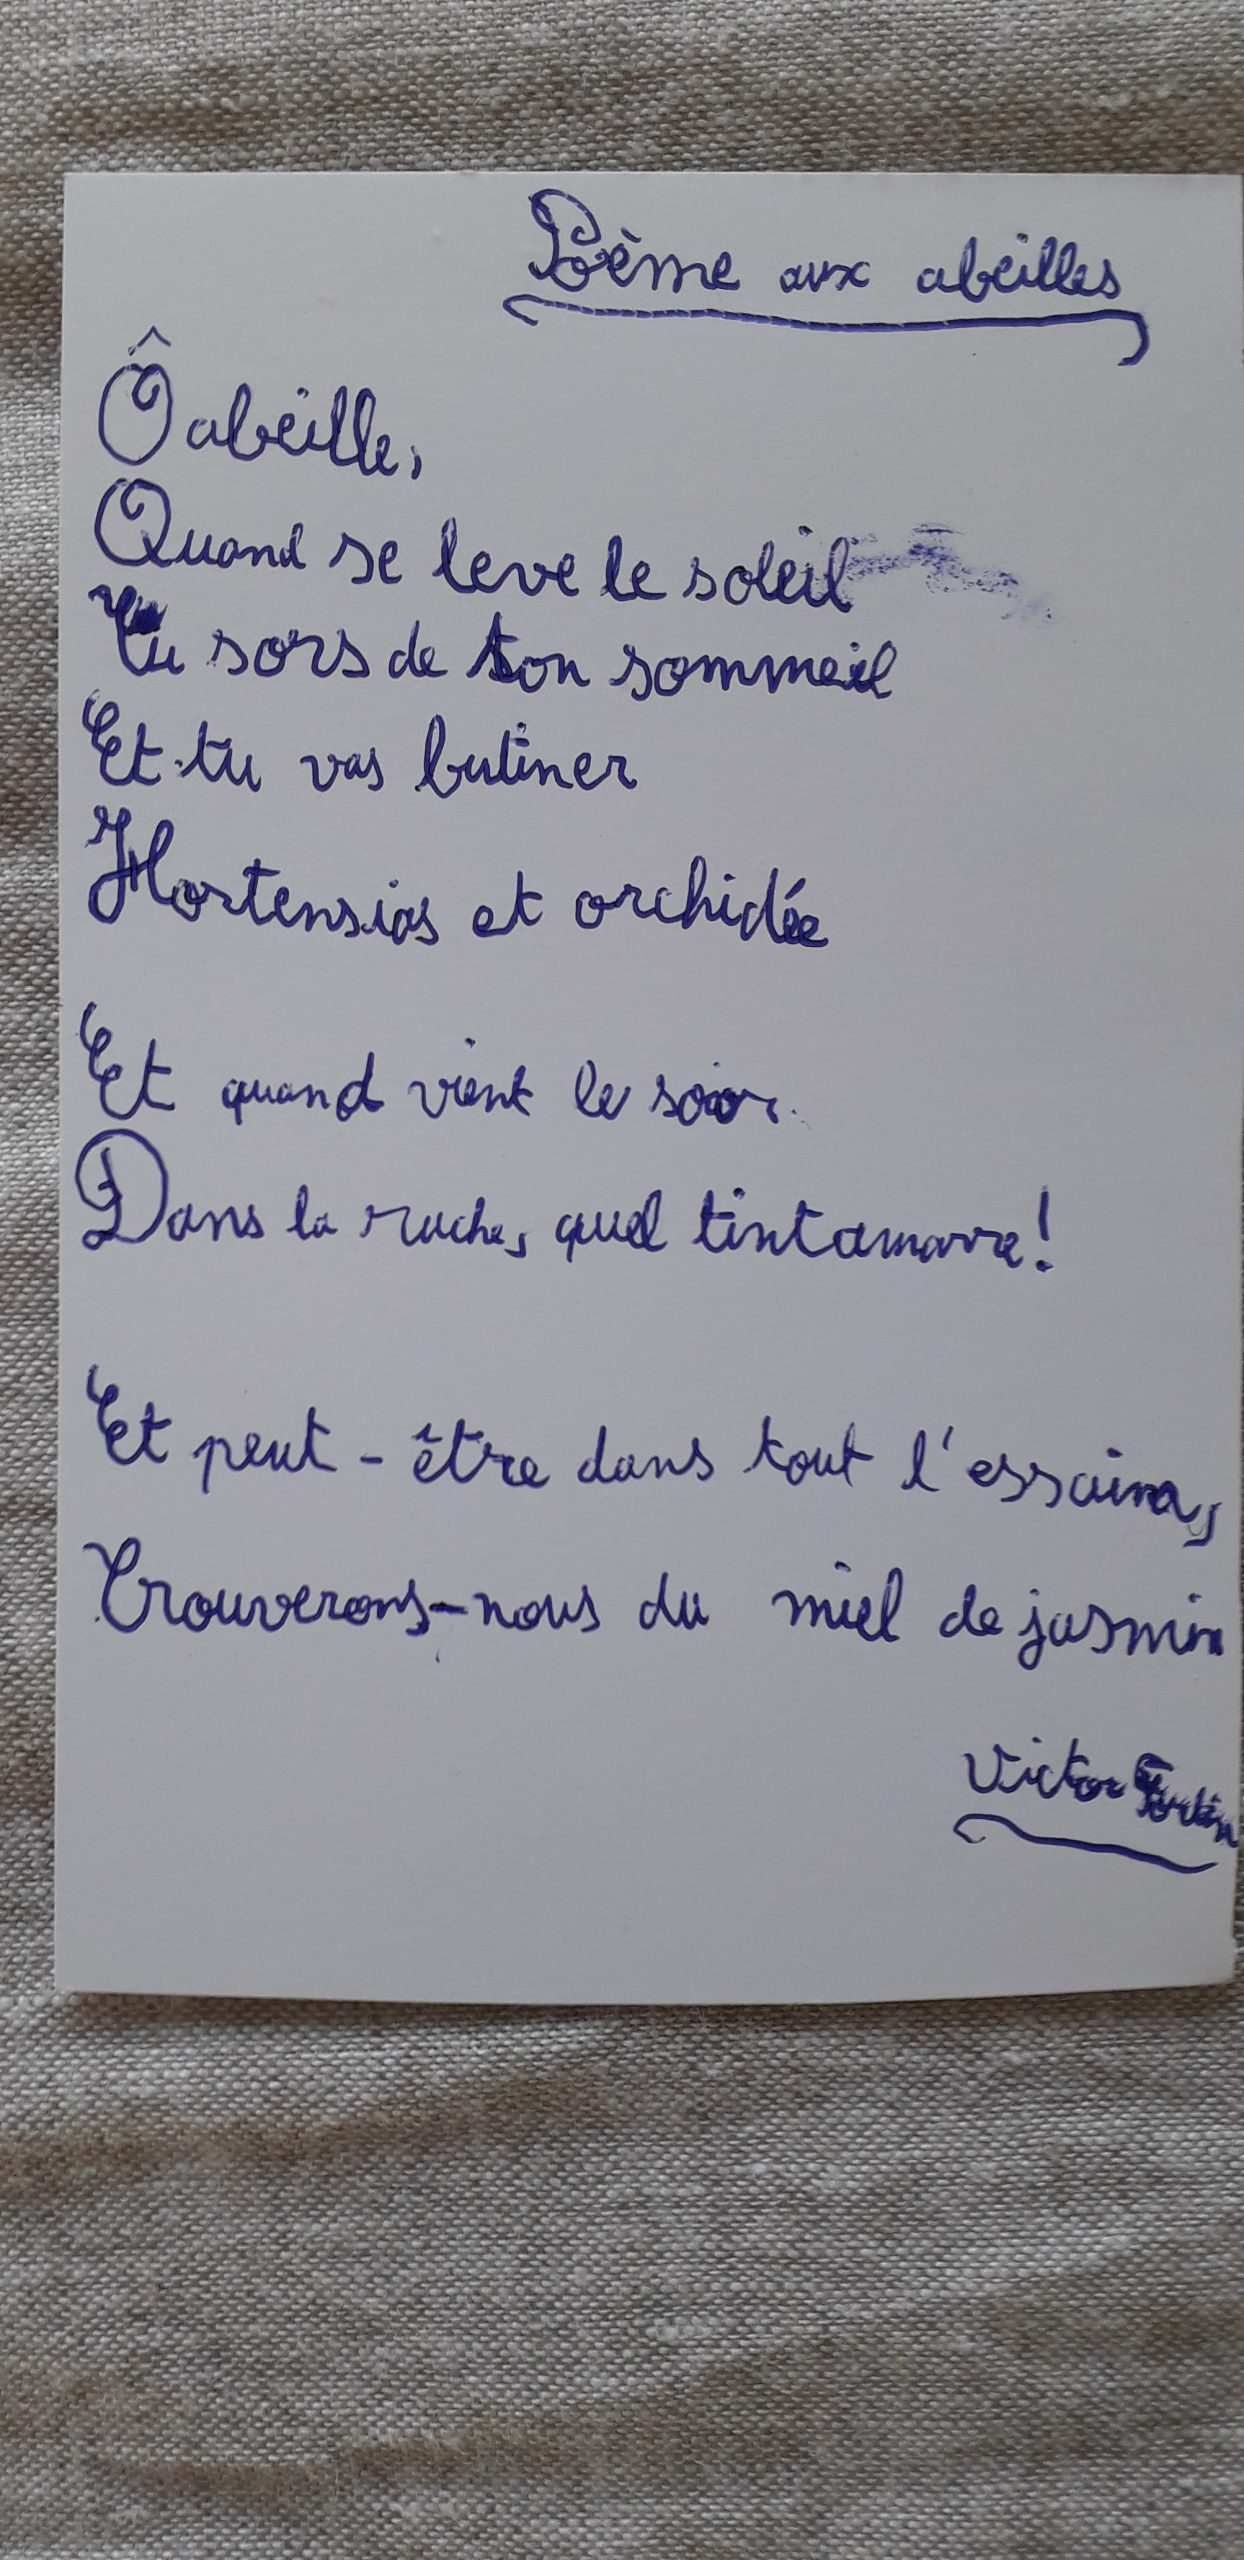 Poème aux abeilles
Ô abeille,
Quand se leve le soleil
Tu sors de ton sommeil
Et tu vas butiner
Hortensias et orchidée
Et quand vient le soir
Dans la ruche, quel tintamarre!
Et peut-être dans tout l'essaim,
Trouverons-nous du miel de jasmin
Victor